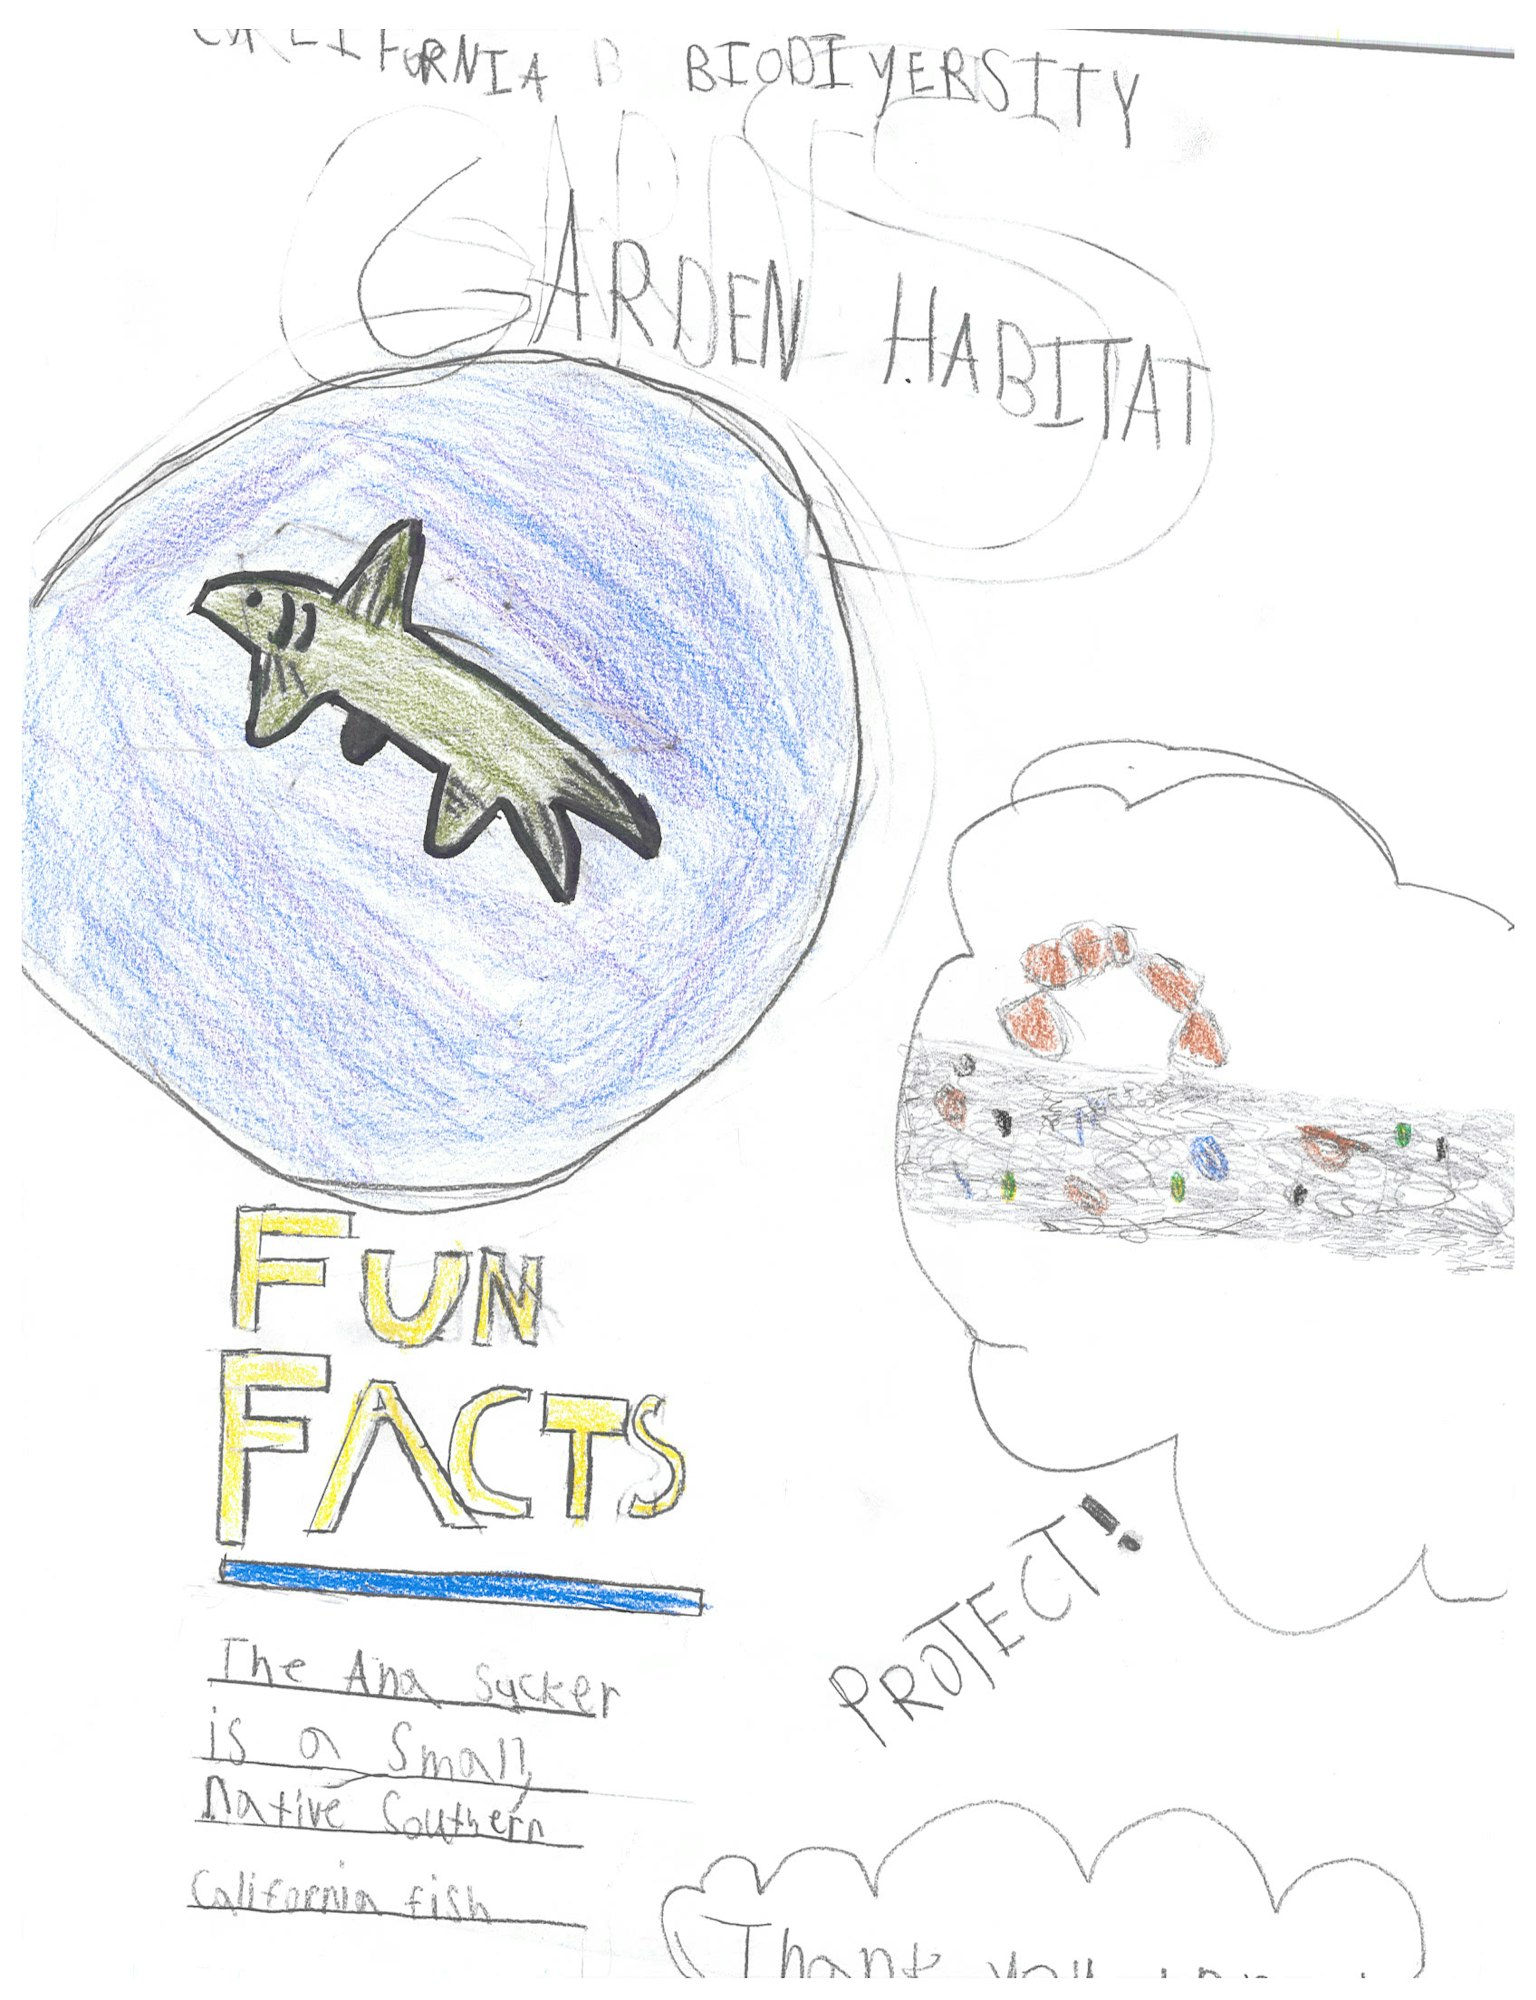 CALIFORNIA B BIODIVERSITY
GARDEN HABITAT
FUN
FACTS
The Ana Sucker
is a Small,
native Southern
California fish
PROTECT!
Thank you